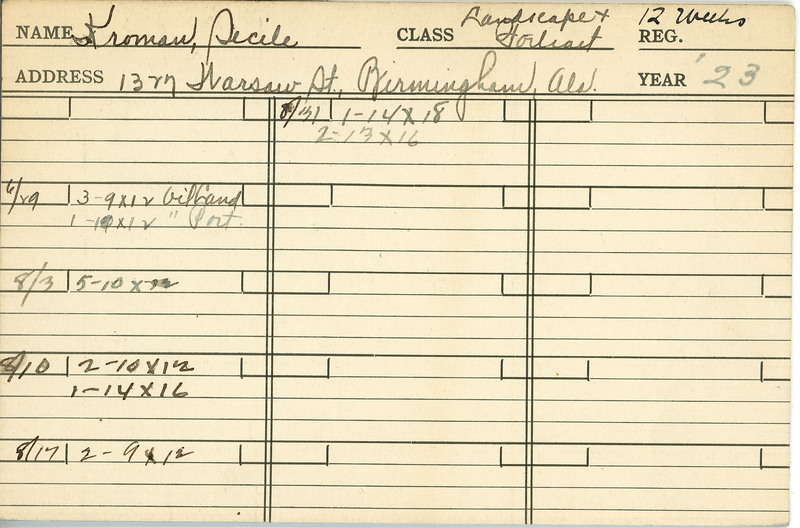 NAME Kroman, Cecile CLASS Landscape & Portrait 12 Weeks REG.
ADDRESS 1327 Warsaw St., Birmingham, Ala. YEAR '23
8/31 1-14 X 18
2-13 X 16
6/29 3-9X12 Oil Land
1-10X12 " Port.
8/3 5-10 X 12
8/10 2-10 X 12
1-14 X 16
8/17 2-9 X 12